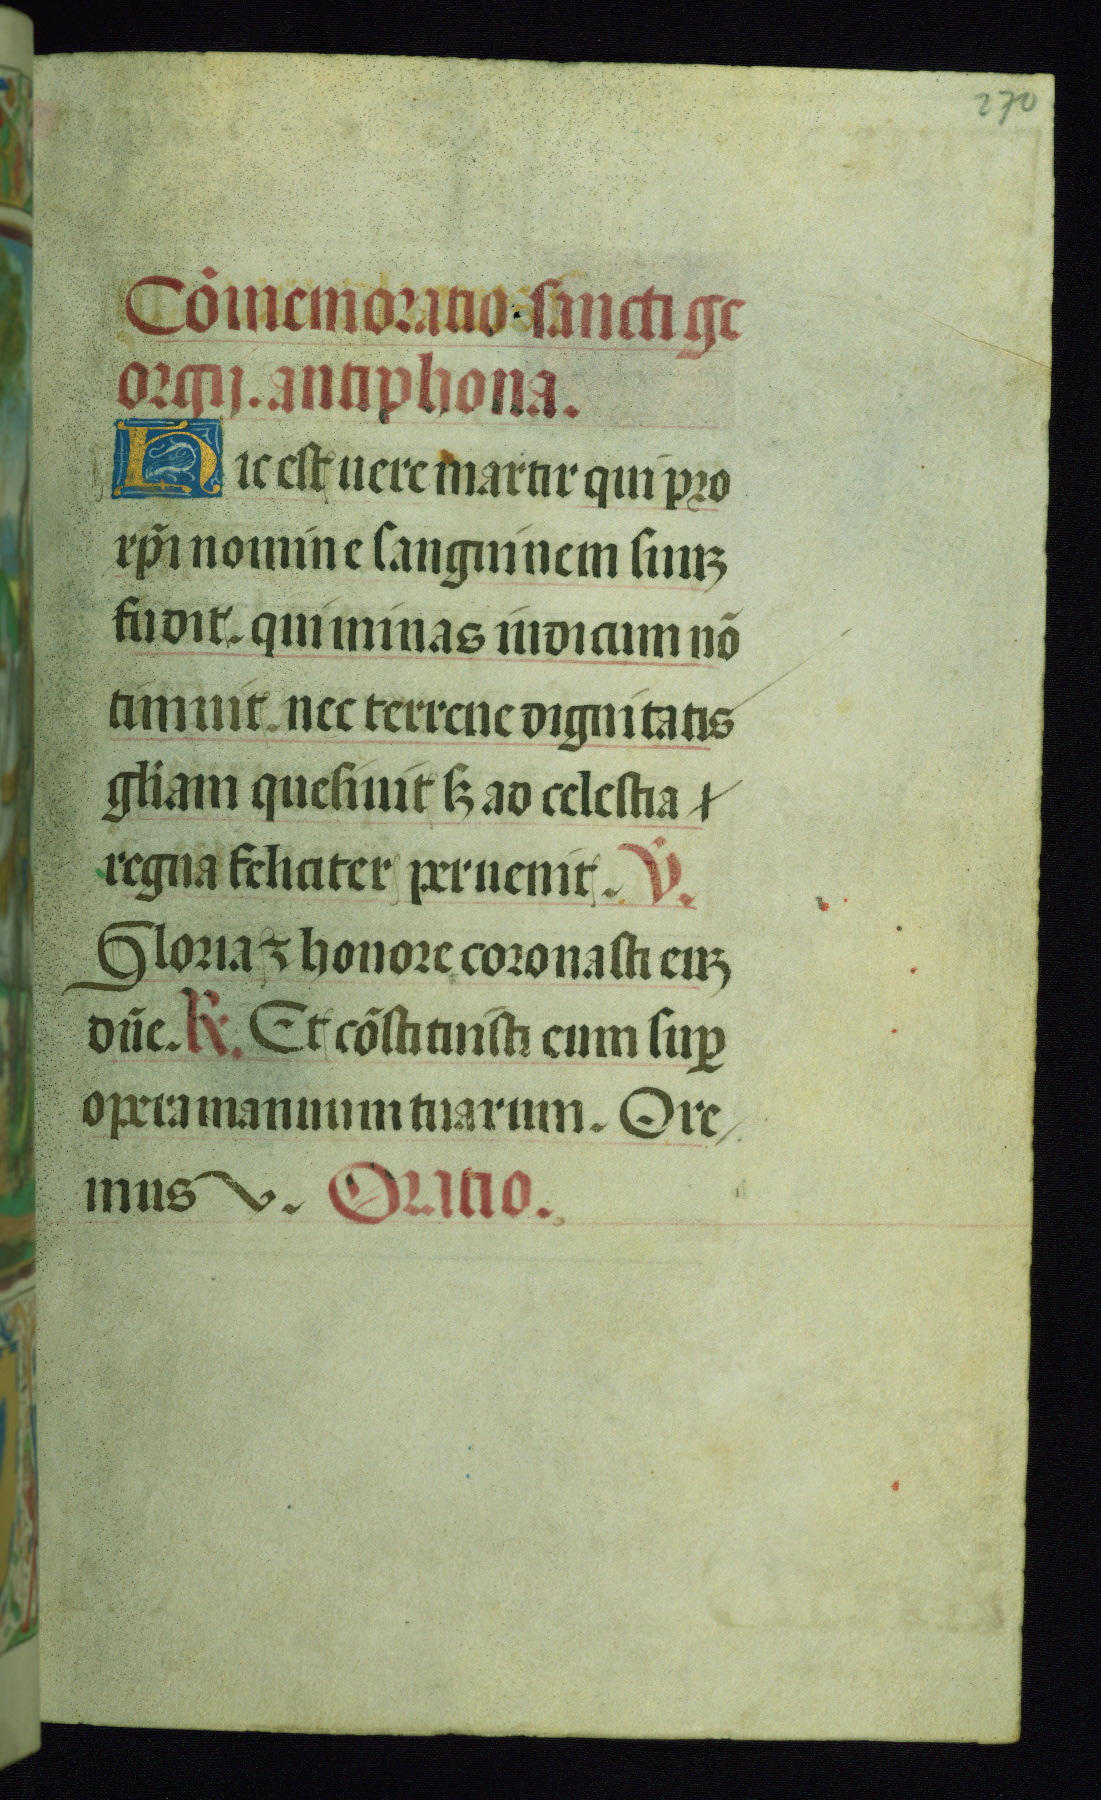 270
Cõmemoratio sancti ge
orgij. antiphona.
Hic est uere martir qui pro
xp̃i nomine sanguinem suuʒ
fudit. qui minas iudicum nõ
timuit. nec terrene dignitatis
gl̃iam quesiuit sʒ ad celestia
regna feliciter peruenit. V̇.
Gloria ⁊ honore coronasti euʒ
dñe. ℟. Et cõstituisti eum suꝑ
opera manuum tuarum. Ore
mus. Oratio.